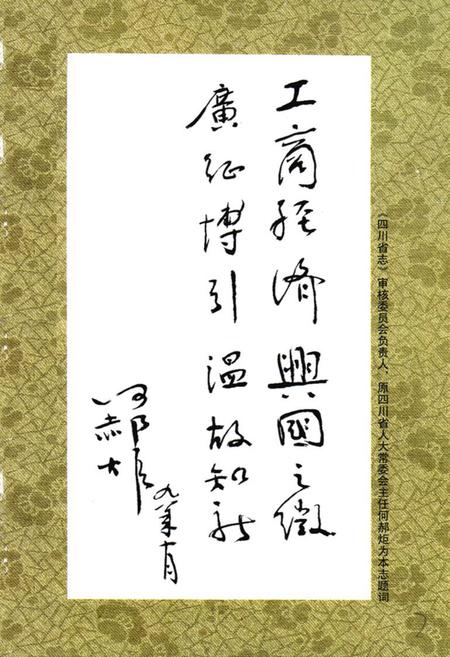 《四川省志》审核委员会负责人、原四川省人大常委会主任何郝炬为本志题词
工商经济興國之徵
廣征博引温故知新
何郝炬